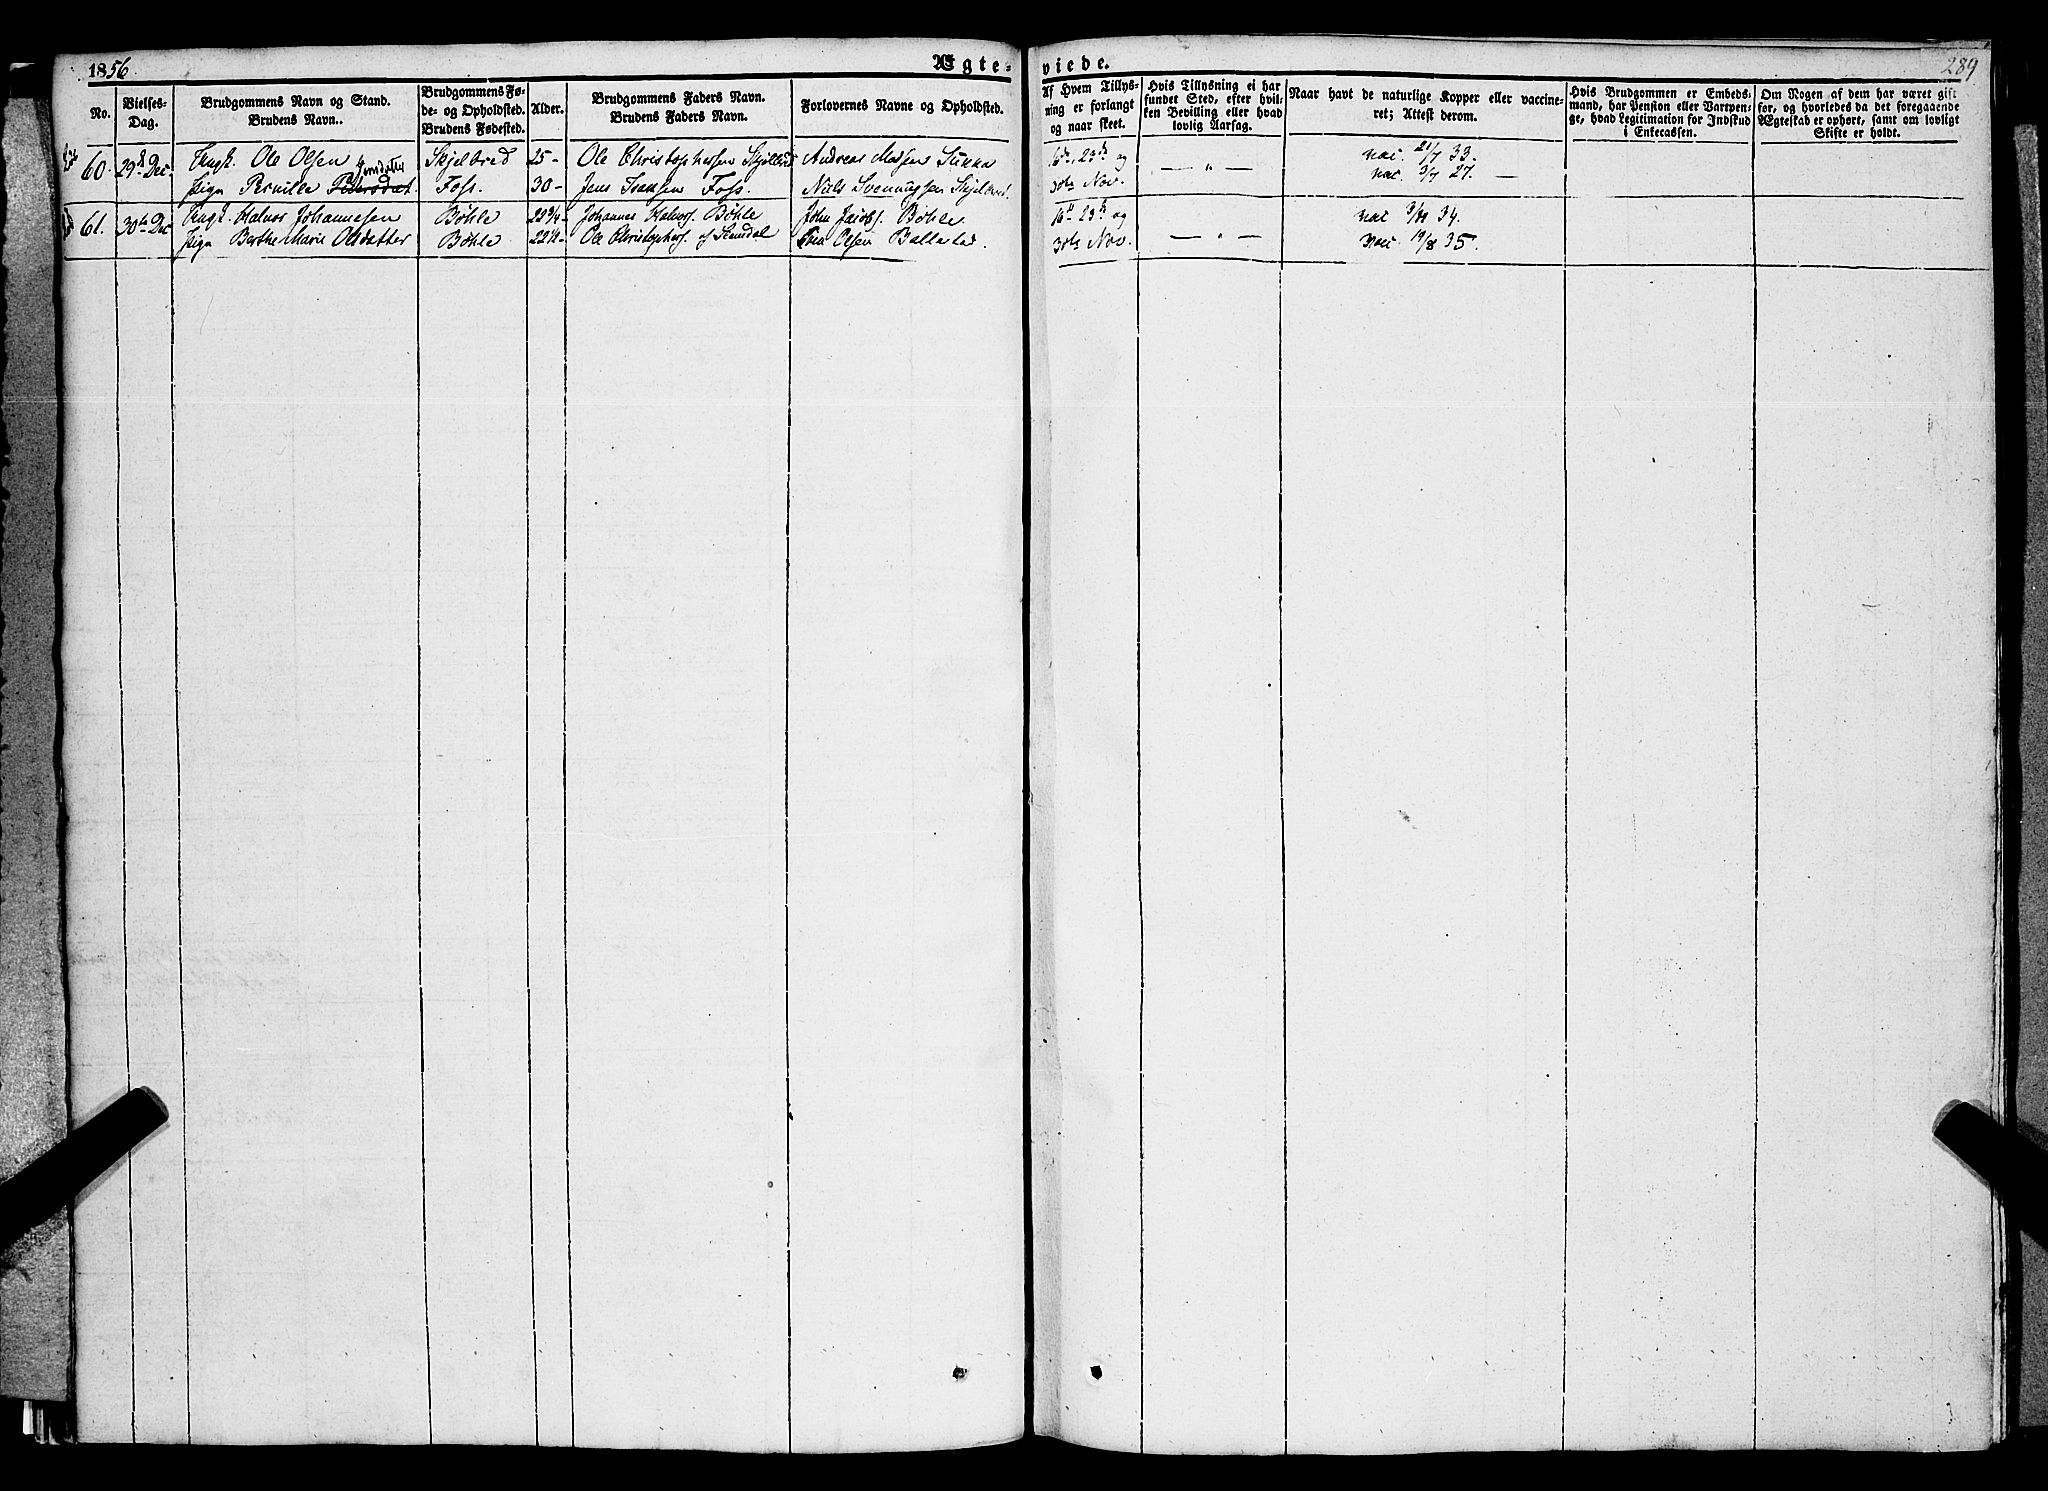 1856
Ægte-
viede.
289
No.
Vielses-
Dag.
Brudgommens Navn og Stand.
Brudens Navn.
Brudgommens Fø-
de- og Opholdsted.
Brudens Fødested.
Alder.
Brudgommens Faders Navn.
Brudens Faders Navn.
Forlovernes Navne og Opholdsted.
Af Hvem Tillys-
ning er forlangt
og naar skeet.
Hvis Tillysning ei har
fundet Sted, efter hvil-
ken Bevilling eller hvad
lovlig Aarsag.
Naar havt de naturlige Kopper eller vaccine-
ret; Attest derom.
Hvis Brudgommen er Embeds-
mand, har Pension eller Vartpen-
ge, hvad Legitimation for Indskud
i Enkecassen.
Om Nogen af dem har været gift
før, og hvorledes da det foregaaende
Ægteskab er ophørt, samt om lovligt
Skifte er holdt.
60. 29de Dec. Ungk. Ole Olsen Skjelbred 25 - Ole Christophersen Andreas Madsen 16de, 23de og vac. 21/7 33.
Jensdatter
Pige Pernille Pedersdat Foss. 30 - Jens Foss. Niels Svenningsen Skjelbred. 30te Nov. — " — vac. 9/7 27. —
61. 30te Dec Ungk. Halvor Johannesen Bøhle 22 3/4 - Johannes Halvors. Bøhle John Jacobs. Bøhle. 16de 23de og vac 34.
Pige Berthe Marie Olsdatter Bøhle 22 1/2 - Ole Christophers. Olsen Ballestad. 30te Nov. — " — vac 19/8 35.